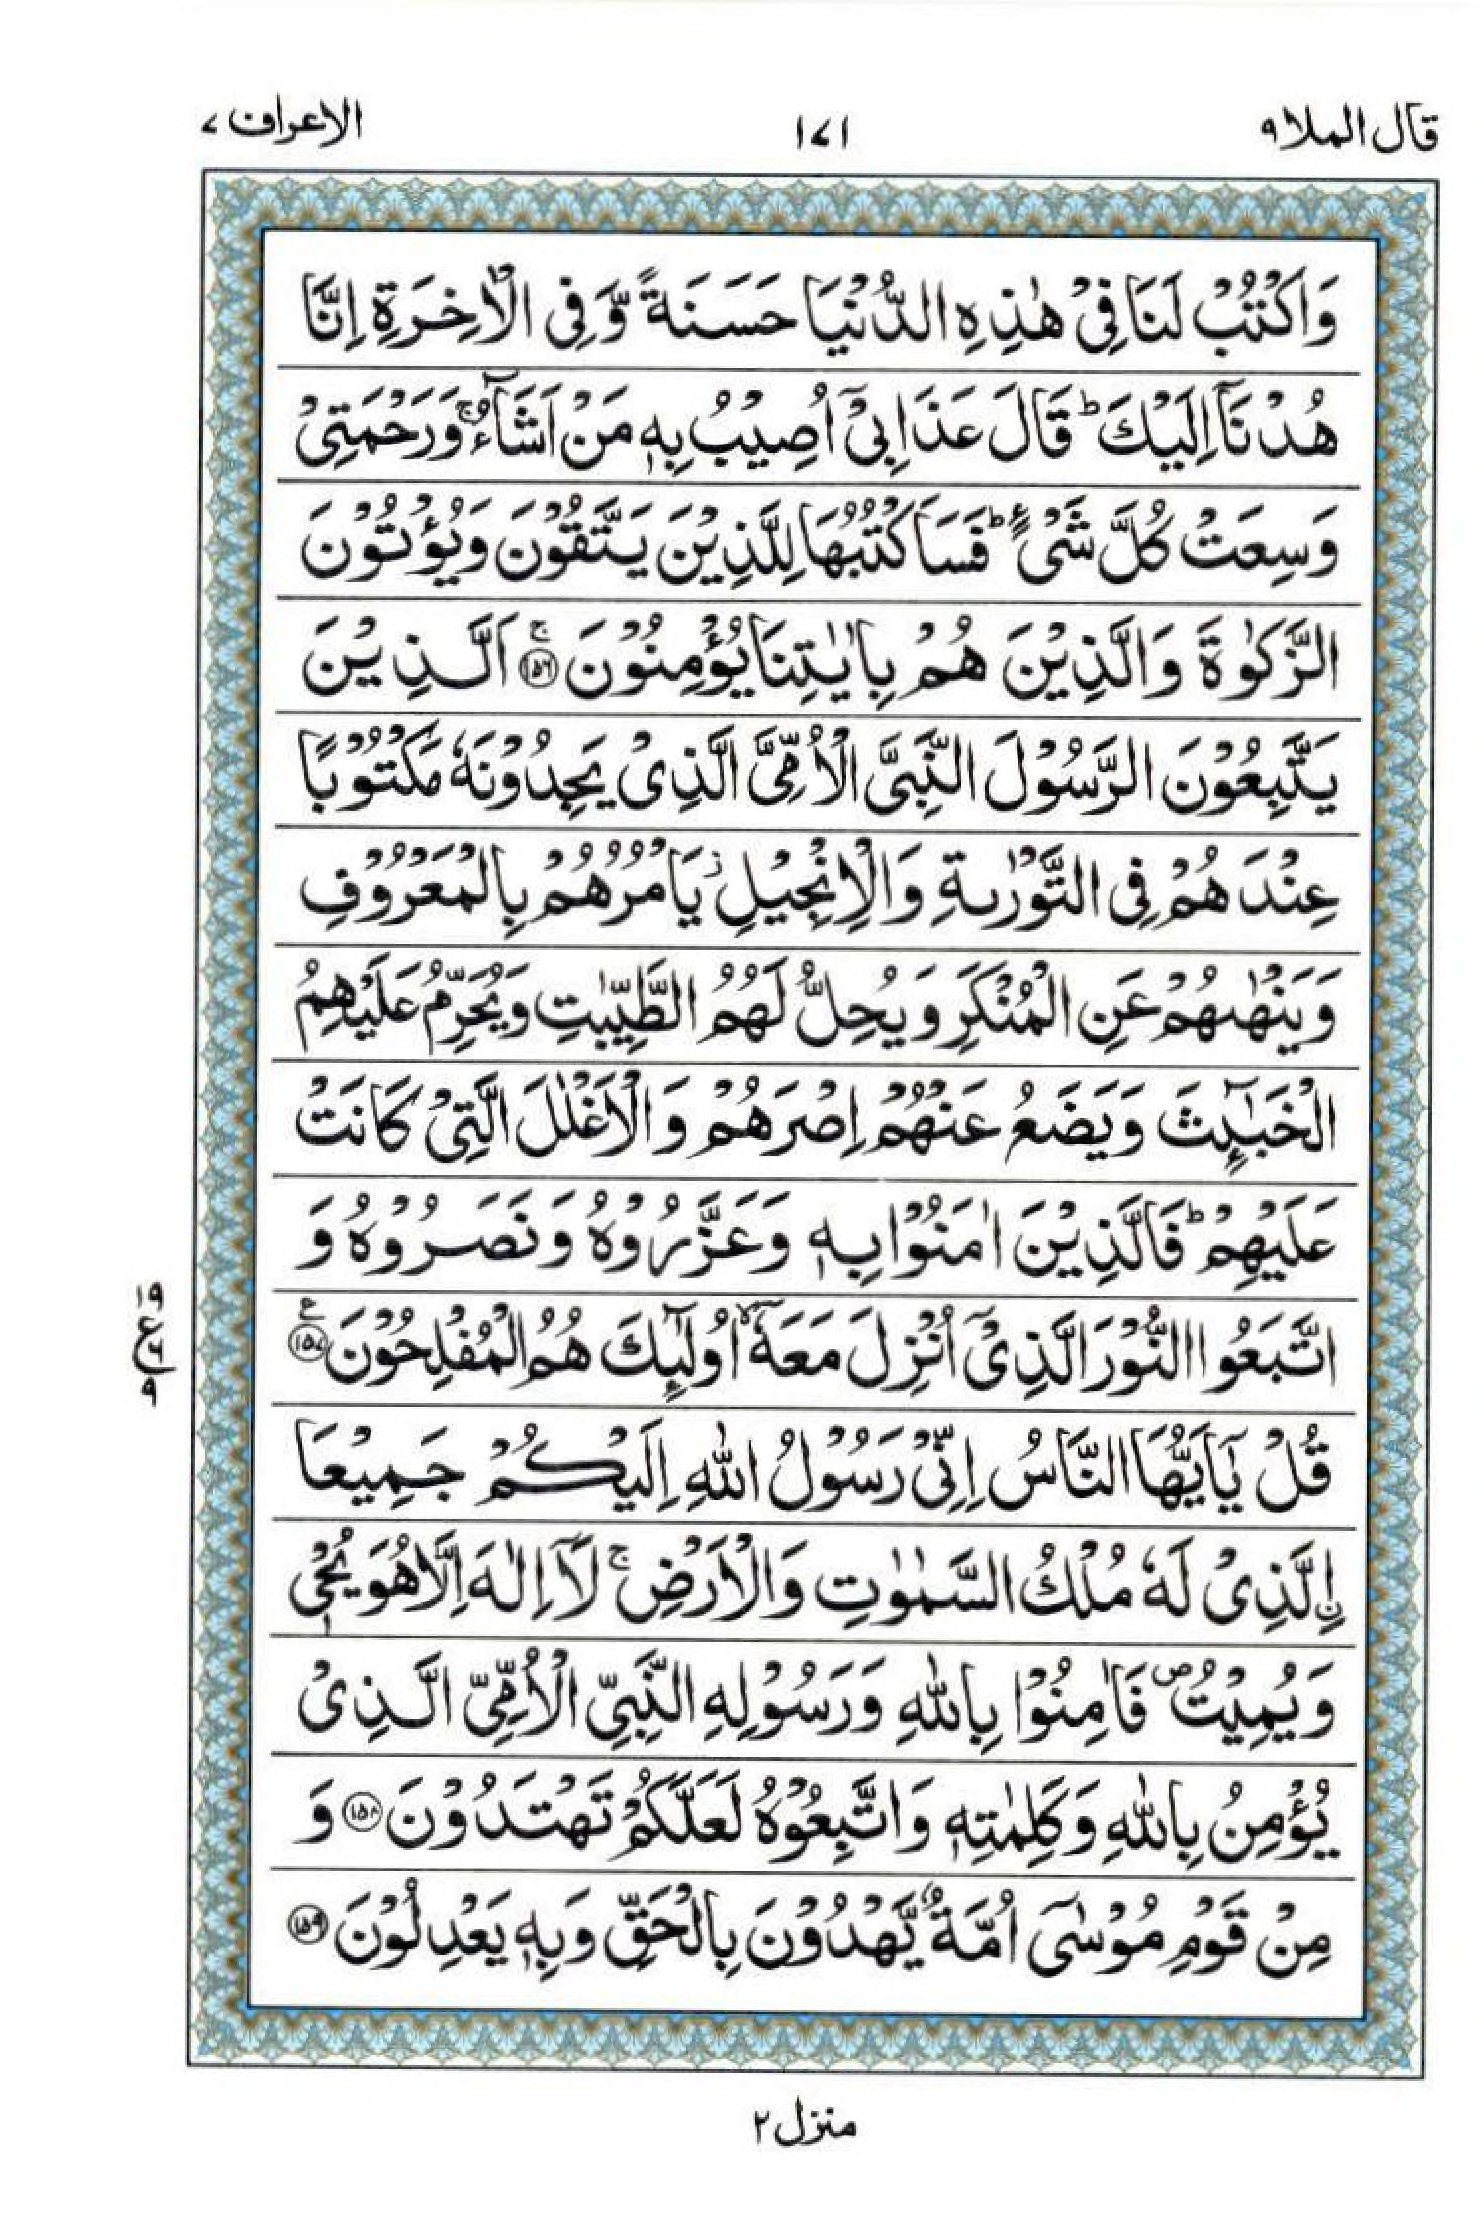 قال الملا ٩ ١٧١ الاعراف ٧
وَاكْتُبْ لَنَا فِیْ هٰذِهِ الدُّنْیَا حَسَنَةً وَّ فِی الْاٰخِرَةِ اِنَّا
هُدْنَاۤ اِلَیْكَ ؕ قَالَ عَذَابِیْۤ اُصِیْبُ بِهٖ مَنْ اَشَآءُ ۚ وَرَحْمَتِیْ
وَسِعَتْ كُلَّ شَیْءٍ ؕ فَسَاَكْتُبُهَا لِلَّذِیْنَ یَتَّقُوْنَ وَیُؤْتُوْنَ
الزَّكٰوةَ وَالَّذِیْنَ هُمْ بِاٰیٰتِنَا یُؤْمِنُوْنَ ۚ ﴿۱۵۶﴾ اَلَّذِیْنَ
یَتَّبِعُوْنَ الرَّسُوْلَ النَّبِیَّ الْاُمِّیَّ الَّذِیْ یَجِدُوْنَهٗ مَكْتُوْبًا
عِنْدَهُمْ فِی التَّوْرٰىةِ وَالْاِنْجِیْلِ ؗ یَاْمُرُهُمْ بِالْمَعْرُوْفِ
وَیَنْهٰىهُمْ عَنِ الْمُنْكَرِ وَیُحِلُّ لَهُمُ الطَّیِّبٰتِ وَیُحَرِّمُ عَلَیْهِمُ
الْخَبٰٓىِٕثَ وَیَضَعُ عَنْهُمْ اِصْرَهُمْ وَالْاَغْلٰلَ الَّتِیْ كَانَتْ
عَلَیْهِمْ ؕ فَالَّذِیْنَ اٰمَنُوْا بِهٖ وَعَزَّرُوْهُ وَنَصَرُوْهُ وَ
اتَّبَعُوا النُّوْرَ الَّذِیْۤ اُنْزِلَ مَعَهٗۤ ۙ اُولٰٓىِٕكَ هُمُ الْمُفْلِحُوْنَ ﴿۱۵۷﴾ ع
١٩
ع
٦
٩
قُلْ یٰۤاَیُّهَا النَّاسُ اِنِّیْ رَسُوْلُ اللّٰهِ اِلَیْكُمْ جَمِیْعَا
ِ۟الَّذِیْ لَهٗ مُلْكُ السَّمٰوٰتِ وَالْاَرْضِ ۚ لَاۤ اِلٰهَ اِلَّا هُوَ یُحْیٖ
وَیُمِیْتُ ۪ فَاٰمِنُوْا بِاللّٰهِ وَرَسُوْلِهِ النَّبِیِّ الْاُمِّیِّ الَّذِیْ
یُؤْمِنُ بِاللّٰهِ وَكَلِمٰتِهٖ وَاتَّبِعُوْهُ لَعَلَّكُمْ تَهْتَدُوْنَ ﴿۱۵۸﴾ وَ
مِنْ قَوْمِ مُوْسٰۤی اُمَّةٌ یَّهْدُوْنَ بِالْحَقِّ وَبِهٖ یَعْدِلُوْنَ ﴿۱۵۹﴾
منزل ٢